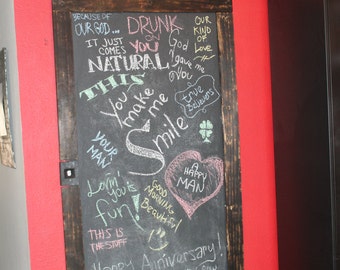 BECAUSE OF
OUR GOD...
DRUNK
ON
YOU
OUR
KIND
OF
Love
IT JUST
COMES
NATURAL
God
gave me
You
THIS
You
make
me
Smile
true
Believers
YOUR
MAN
A
HAPPY
MAN
Lovin
you is
fun!
GOOD
MORNING
Beautiful
THIS IS
THE STUFF
Happy Anniversary!